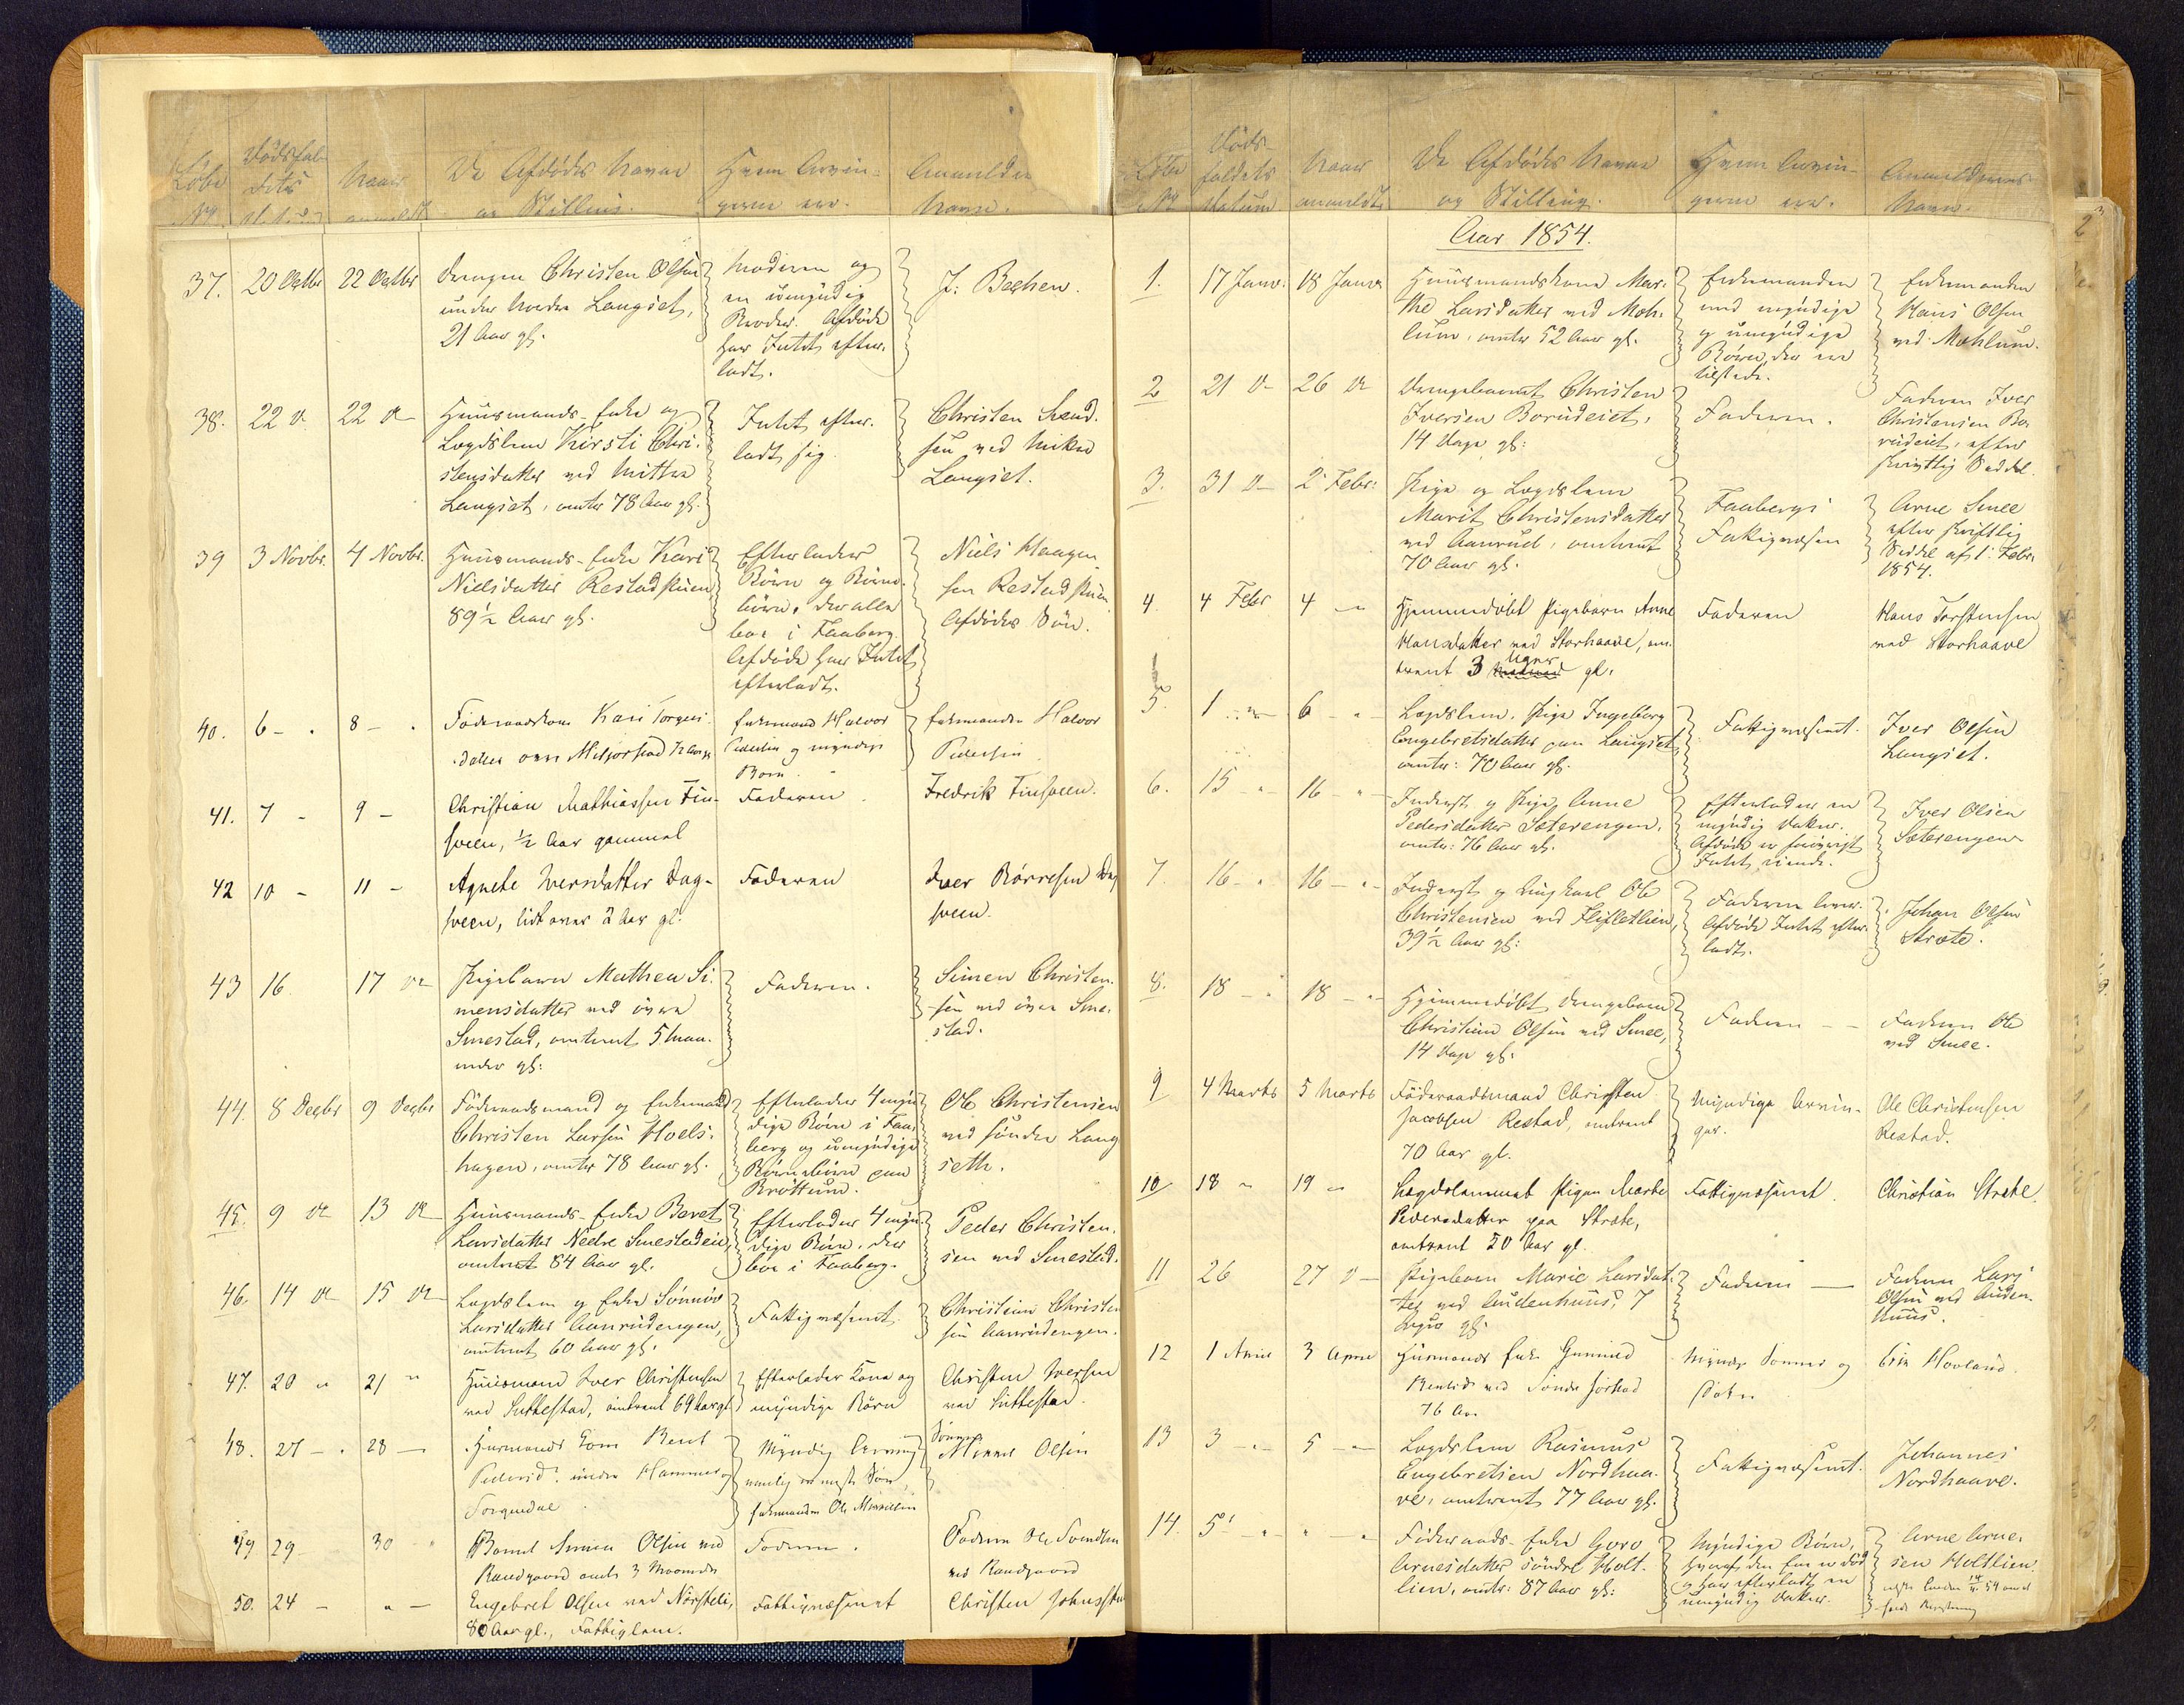 Löbe No
Dødsfaldets Datum
Naar anmeldt
De Afdødes Navne og Stilling.
Hvem Arvingerne ere.
Anmelderens Navn.
37. 20 Octbr 22 Octbr
Drengen Christen Olsen
under Nordre Langset,
21 Aar gl.
Moderen og
en umyndig
Broder. Afdøde
har Intet efter-
ladt.
J. Bechen.
38. 22 d. 22 do
Huusmands-Enke og
Lægdslem Kirsti Chri-
stensdatter ved
Langset, omtr 78 Aar gl.
Intet efter-
ladt sig.
Christen Svend-
sen ved
Langset.
39 3 Novbr. 4 Novbr.
Huusmands-Enke Kari
Nielsdatter Restadstuen
89½ Aar gl.
Efterlader
Börn og Börne-
börn, der alle
boe i Faaberg.
Afdøde har Intet
efterladt.
Niels Haagen-
sen Restadstuen
Afdødes Sön.
40. 6 - 8 -
Föderaadskone Kari Torgers-
datter
Enkemand Halvor
Pedersen og myndige
Börn.
Enkemanden Halvor
Pedersen
41. 7 - 9 -
Christian Mathiassen Fin-
sveen, ½ Aar gammel
Faderen
Fredrik Finsveen.
42 10 - 11 -
Agnete Iversdatter Dag-
sveen, lidt over 2 Aar gl.
Faderen
Iver Börresen Dag
sveen.
43 16 17 do
Pigebarn Mathea Si-
mensdatter ved övre
Smestad, omtrent 5 Maa-
neder gl.
Faderen.
Simen Christen-
sen ved övre Sme-
stad.
44. 8 Decbr 9 Decbr
Föderaadsmand og Enkemand
Christen Larsen Hoels-
hagen, omtr 78 Aar gl.
Efterlader 4 myn-
dige Börn i Faa-
berg og umyndige
Börnebörn paa
Bröttum.
Ole Christensen
ved söndre Lang
seth.
45. 9 do 13 do
Huusmands-Enke Beret
Larsdatter Nedre Smestadeie
omtrent 84 Aar gl.
Efterlader 4 myn-
dige Börn, der
boe i Faaberg.
Peder Christen-
sen ved Smestad.
46. 14 do 15 do
Lægdslem og Enke Sönnöv
Larsdatter Aanrudengen,
omtrent 60 Aar gl.
Fattigvæsenet
Christian Christen
sen Aanrudengen.
47. 20 " 21 "
Huusmand Iver Christensen
ved Suttestad, omtrent 69 Aar gl
Efterlader Kone og
myndige Börn
Christen Iversen
ved Suttestad.
48. 27 - 28 -
Huusmands Kone Berit
Pedersd. under Hammer
Myndig Arving
nemlig en Sön,
Enkemanden Ole
Sönnen
Olsen
49 29 - 30 "
Barnet Simen Olsen ved
Randgaard omtr 3 Maaneder
Faderen.
Faderen Ole Svendsen
ved Randgaard
50. 24 - " -
Engebret Olsen ved Nörsteli,
80 Aar gl., Fattiglem.
Fattigvæsenet
Christen Johnsen
Löbe No
Döds-
faldets
Datum
Naar
anmeldt
De Afdödes Navne
og Stilling.
Hvem Arvin-
gerne ere.
Anmelderens
Navn.
Aar 1854.
1. 17 Januar. 18 Januar
Huusmandskone Mar-
the Larsdatter ved Moh-
lum, omtr 52 Aar gl.
Enkemanden
med myndige
og umyndige
Börn, der ere
tilstede.
Enkemanden
Hans Olsen
ved Mohlum.
2 21 do 26 do
Drengebarnet Christen
Iversen Borudeiet,
14 Dage gl:
Faderen.
Faderen Iver
Christensen Bo-
rudeiet, efter
skriftlig Seddel.
3. 31 do 2 Febr:
Pige og Lægdslem
Marit Christensdatter
ved Aanrud, omtrent
70 Aar gl.
Faabergs
Fattigvæsen
Arne Smee
efter skriftlig
Seddel af 1 Febr.
1854.
4. 4 Febr 4 -
Hjemmedöbt Pigebarn Anne
Hansdatter ved Storhaave, om-
trent 3 Uger gl.
Faderen
Hans Torstensen
ved Storhaave
5. 1 - 6 -
Lægdslem, Pige Ingeborg
Engebretsdatter paa Langset
omtr: 70 Aar gl.
Fattigvæsenet.
Iver Olsen
Langset.
6. 15 - 16 -
Inderst og Pige Anne
Pedersdatter Sæterengen,
omtr: 76 Aar gl.
Efterlader en
myndig Datter.
Afdöde er forövrigt
Intet eiende.
Iver Olsen
Sæterengen
7. 16 - 16 -
Inderst og Ungkarl Ole
Christensen ved Flifletlien,
39½ Aar gl:
Faderen Arver.
Afdöde Intet efter-
ladt.
Johan Olsen
Stræte.
8. 18 - 18 -
Hjemmedöbt Drengebarn
Christian Olsen ved Smee,
14 Dage gl.
Faderen
Faderen Ole
ved Smee.
9 4 Marts 5 Marts
Föderaadsmand Christen
Jacobsen Restad, omtrent
70 Aar gl.
Myndige Arvin-
ger.
Ole Christensen
Restad.
10 18 - 19 -
Lægdslemmet Pigen Marte
Pedersdatter paa Stræte,
omtrent 50 Aar gl.
Fattigvæsenet.
Christian Stræte
11 26 27 d -
Pigebarn Marie Larsdat-
ter ved Audenhuus, 7
Uger gl.
Faderen
Faderen Lars
Olsen ved Auden-
huus.
12 1 April 3 April
Huusmands Enke Gunnild
ved Söndre Jörstad
76 Aar
Myndige Sönner og
Datter
Erik Hovland.
13 3 - 5 -
Lægdslem Rasmus
Engebretsen Nordhaa-
ve, omtrent 77 Aar gl.
Fattigvæsenet.
Johannes
Nordhaave.
14. 5 - " -
Föderaads-Enke Goro
Arnesdatter söndre Holt-
lien, omtr: 87 Aar gl:
Myndige Börn,
hvoraf den Ene er död
og har efterladt en
umyndig Datter.
Arne Arne-
sen Holtlien.